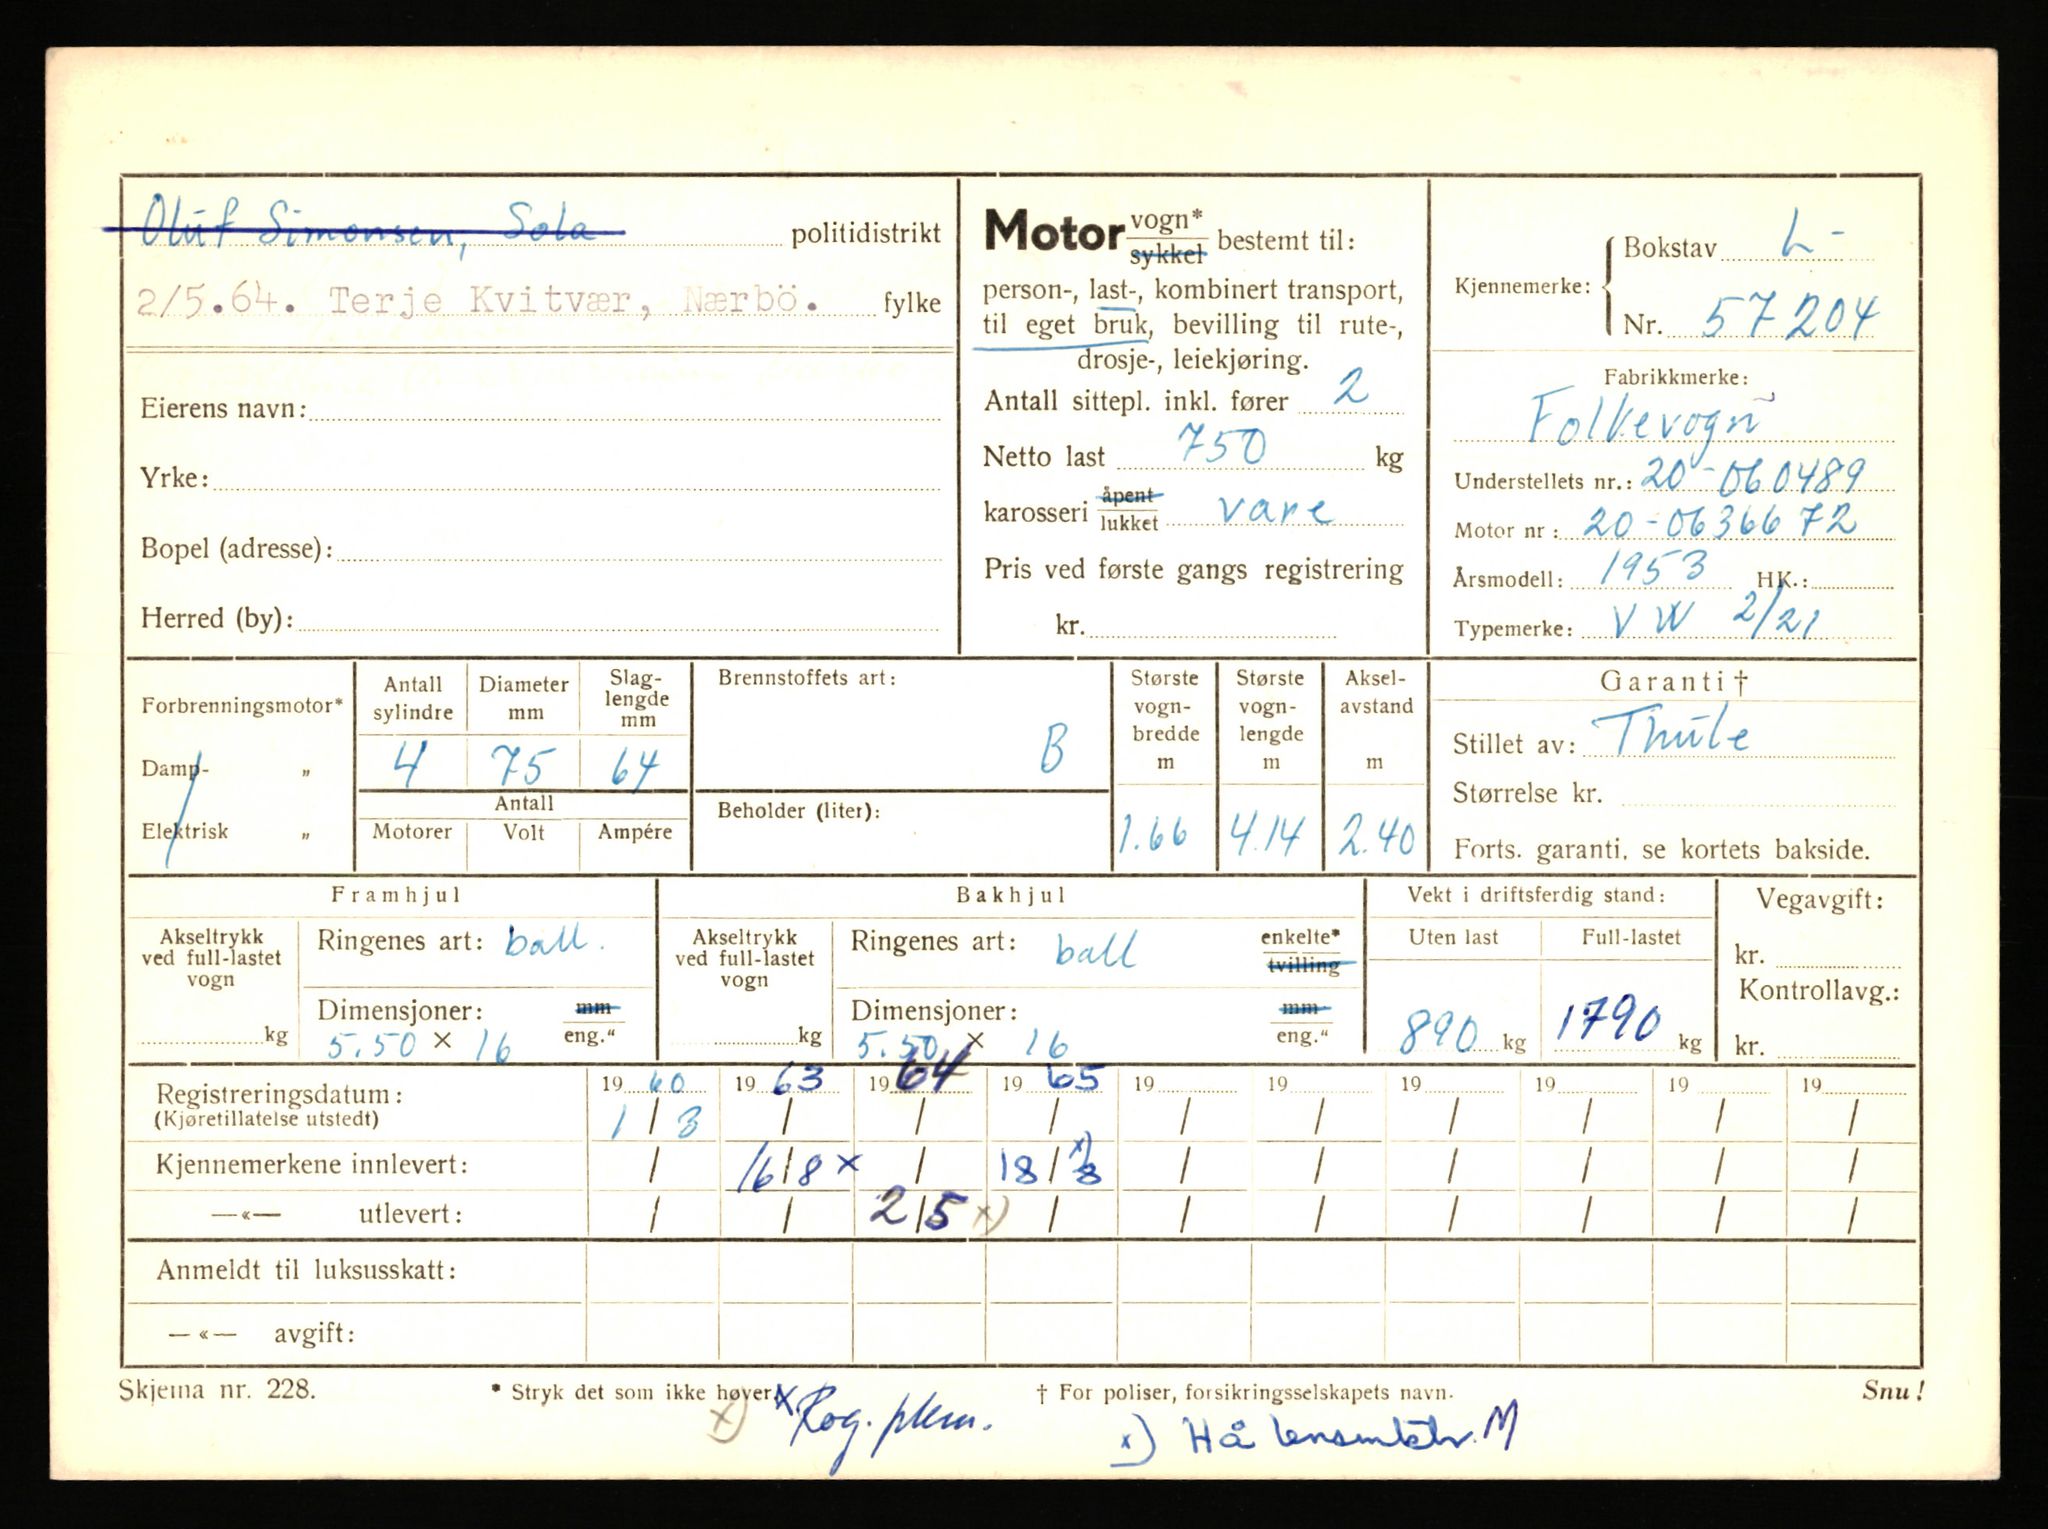 Oluf Simonsen, Sola politidistrikt
2/5.64. Terje Kvitvær, Nærbö. fylke
Eierens navn:
Yrke:
Bopel (adresse):
Herred (by):
Motor vogn* sykkel bestemt til:
person-, last-, kombinert transport,
til eget bruk, bevilling til rute-,
drosje-, leiekjøring.
Antall sittepl. inkl. fører 2
Netto last 750 kg
karosseri åpent lukket vare
Pris ved første gangs registrering
kr.
Kjennemerke: Bokstav L-
Nr. 57204
Fabrikkmerke:
Folkevogn
Understellets nr.: 20-060489
Motor nr: 20-0636672
Årsmodell: 1953 HK.:
Typemerke: VW 2/21
Forbrenningsmotor*
Damp- „
Elektrisk „
Antall sylindre Diameter mm Slag-lengde mm
4 75 64
Antall
Motorer Volt Ampére
Brennstoffets art:
B
Beholder (liter):
Største vogn-bredde m
1.66
Største vogn-lengde m
4.14
Aksel-avstand m
2.40
Garanti †
Stillet av: Thule
Størrelse kr.
Forts. garanti, se kortets bakside.
Framhjul
Akseltrykk ved full-lastet vogn
kg
Ringenes art: ball.
Dimensjoner: mm
5.50 × 16 eng."
Bakhjul
Akseltrykk ved full-lastet vogn
kg
Ringenes art: ball enkelte* tvilling
Dimensjoner: mm
5.50 × 16 eng."
Vekt i driftsferdig stand:
Uten last Full-lastet
890 kg 1790 kg
Vegavgift:
kr.
Kontrollavg.:
kr.
Registreringsdatum: 19 60 19 63 19 64 19 65 19 19 19 19 19 19
(Kjøretillatelse utstedt) 1/3 / / / / / / / / /
Kjennemerkene innlevert: / 16/8 x / 18/8 x) / / / / / /
—«— utlevert: / / 2/5 x) / / / / / / /
Anmeldt til luksusskatt:
—«— avgift:
Skjema nr. 228. * Stryk det som ikke høver. † For poliser, forsikringsselskapets navn. Snu!
x) x. Rog. pkm.
x) Hå lensmktr. M